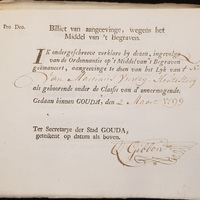 Pro Deo.
Billiet van aangeevinge, wegens het
Middel van 't Begraven.
IK ondergeschreve verklare by dezen, ingevolge
van de Ordonnantie op 't Middel van 't Begraven
geëmaneert, aangeevinge te doen van het Lyk van
Van
als gehoorende onder de Classis van d'onvermogende.
Gedaan binnen GOUDA, den 2 Maart 1799
Ter Secretarye der Stad GOUDA,
geteikent op datum als boven.